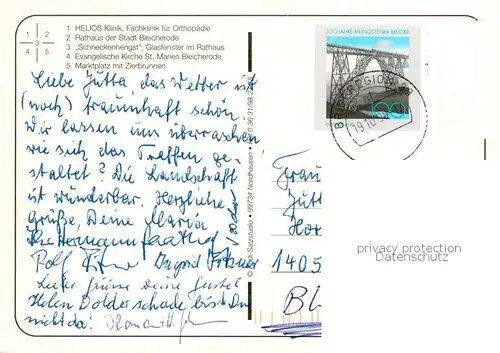 1 HELIOS Klinik, Fachklinik für Orthopädie
2 Rathaus der Stadt Bleicherode
3 „Schneckenhengst", Glasfenster im Rathaus
4 Evangelische Kirche St. Marien Bleicherode
5 Marktplatz mit Zierbrunnen
1 2
3
4 5
Liebe Jutta, das Wetter ist
(noch) traumhaft schön.
Wir lassen uns überraschen
wie sich das Treffen ge-
staltet? Die Landschaft
ist wunderbar. Herzliche
Grüße, Deine Maria
Ihr Hermann
Rolf Ingrid
Liebe Grüße deine Gustel
schade bist Du
nicht da!
Satzstudio • 99734 Nordhausen
100 JAHRE MÜNGSTENER BRÜCKE
100
19.10.
Frau
Jutt
Hor
1405
privacy protection
Datenschutz